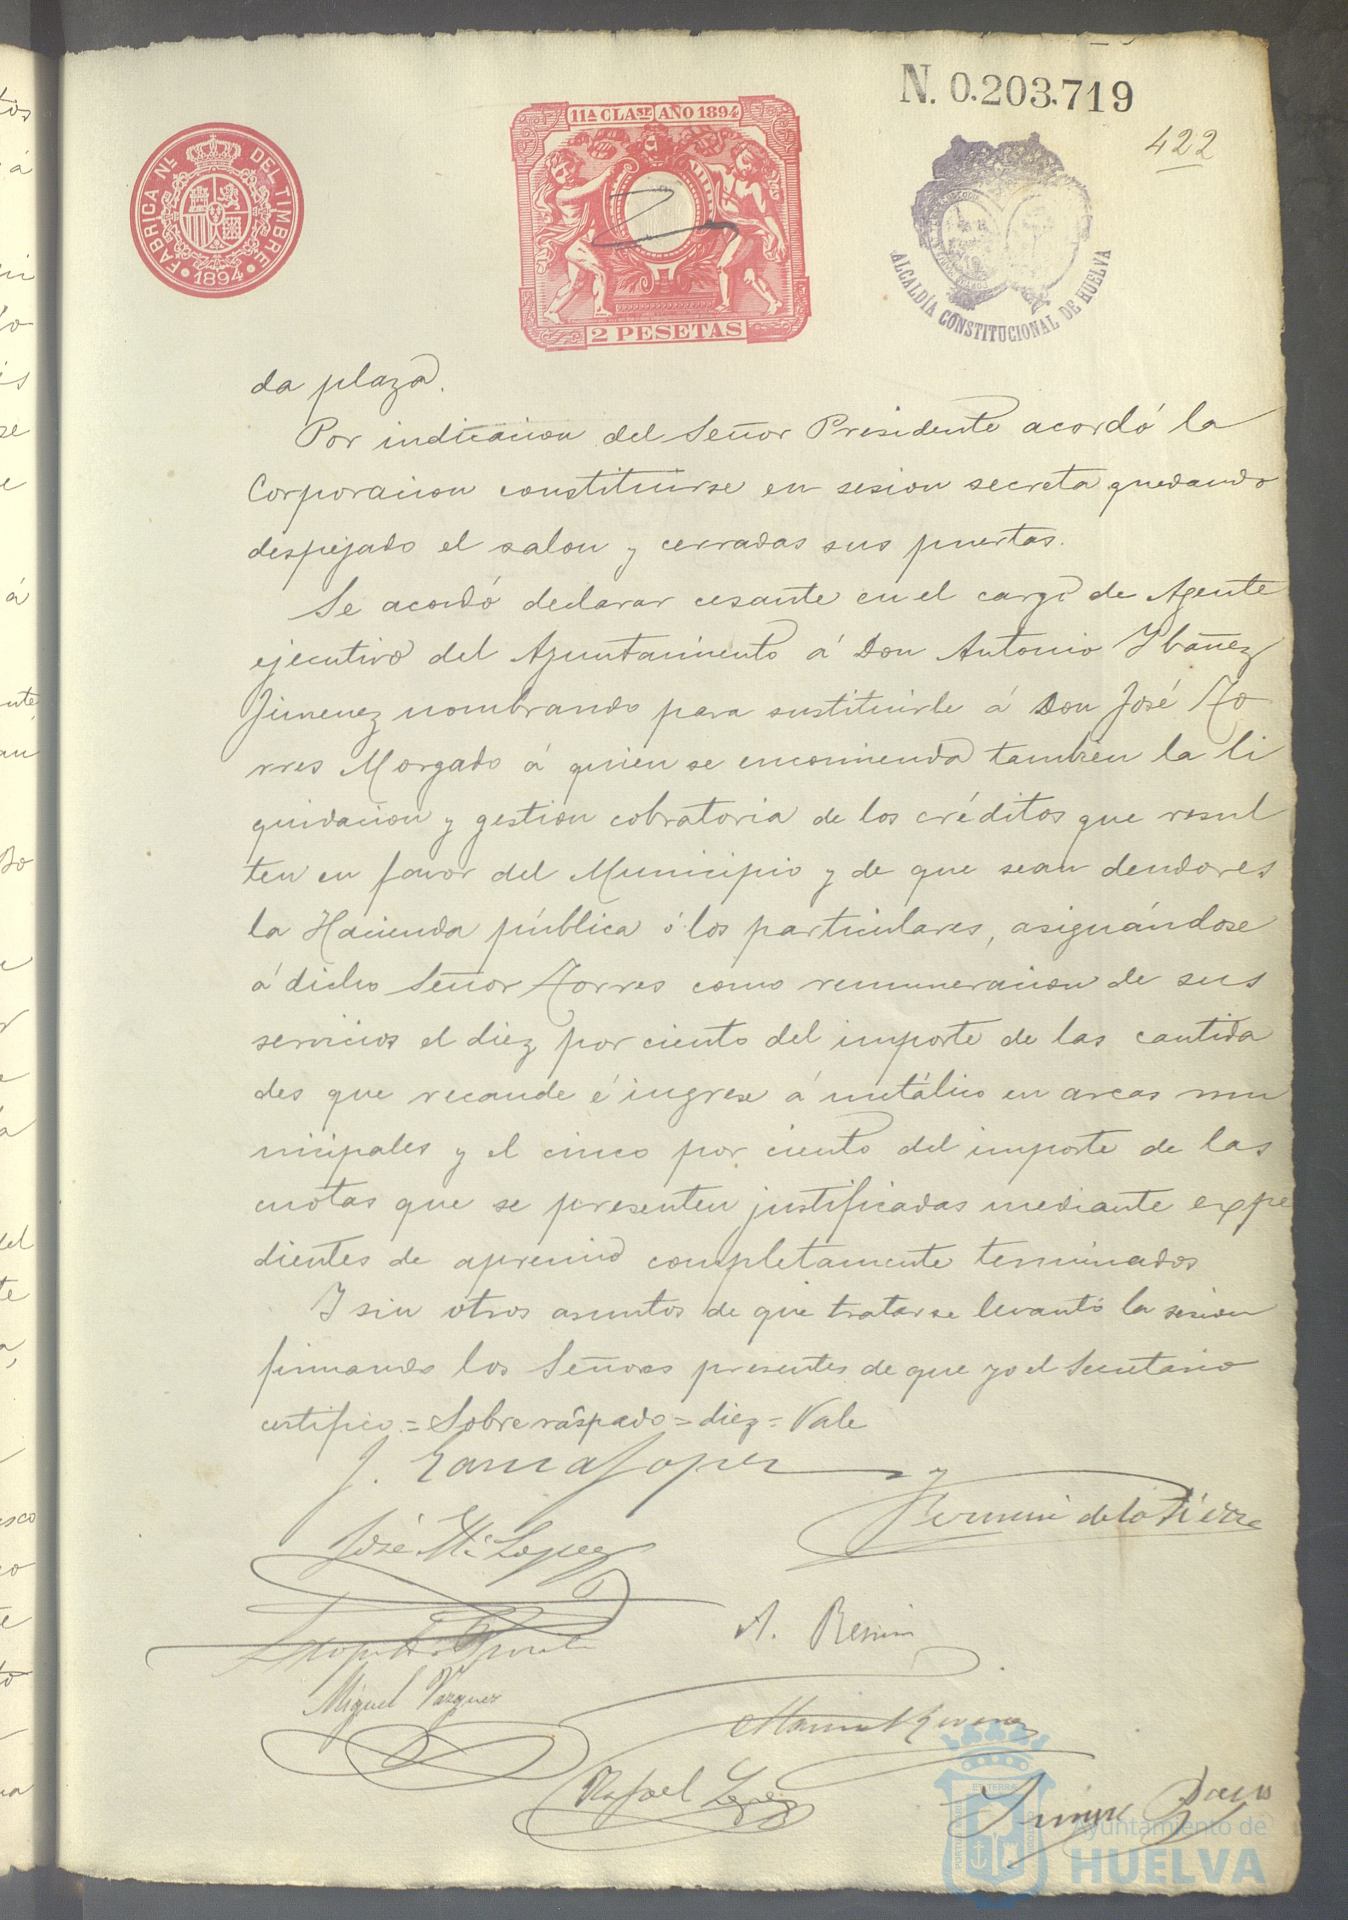 N. 0.203.719
422
11ª CLASE AÑO 1894
FÁBRICA NL. DEL TIMBRE
1894
2 PESETAS
ALCALDÍA CONSTITUCIONAL DE HUELVA
da plaza.
Por indicacion del Señor Presidente acordó la
Corporacion constituirse en sesion secreta quedando
despejado el salon y cerradas sus puertas.
Se acordó declarar cesante en el cargo de Agente
ejecutivo del Ayuntamiento á Don Antonio Ybañez
Jimenez nombrando para sustituirle á Don José To
rres Morgado á quien se encomienda tambien la li
quidacion y gestion cobratoria de los créditos que resul
ten en favor del Municipio y de que sean deudores
la Hacienda pública ó los particulares, asignándose
á dicho Señor Torres como remuneracion de sus
servicios el diez por ciento del importe de las cantida
des que recaude é ingrese á metálico en arcas mu
nicipales y el cinco por ciento del importe de las
cuotas que se presenten justificadas mediante expe
dientes de apremio completamente terminados
Y sin otros asuntos de que tratar se levantó la sesion
firmando los Señores presentes de que yo el Secretario
certifico = Sobre raspado = diez = Vale
J. Garcia Lopez
Fermin de la Sierra
José Mª Lopez
A.
Miguel Vazquez
Rafael Lopez
Ayuntamiento de
HUELVA